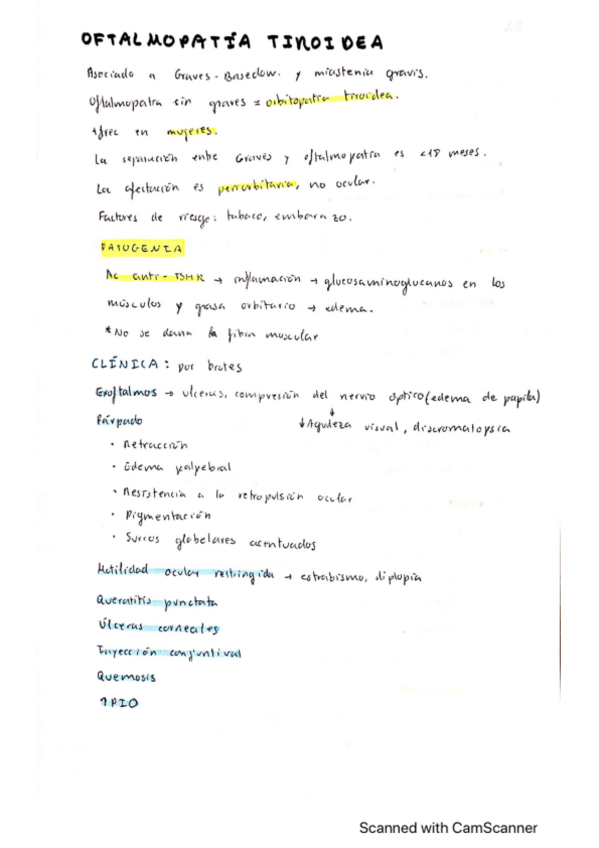 OFTALMOPATÍA TIROIDEA
Asociado a Graves-Basedow. y miastenia gravis.
Oftalmopatia sin graves = orbitopatia tiroidea.
+frec en mujeres.
La separación entre Graves y oftalmopatia es <18 meses.
La afectación es periorbitaria, no ocular.
Factores de riesgo: tabaco, embarazo.
PATOGENIA
Ac anti-TSHR → inflamación → glucosaminoglucanos en los
músculos y grasa orbitario → edema.
*No se daña la fibra muscular
CLÍNICA: por brotes
Exoftalmos → ulceras, compresión del nervio óptico (edema de papila)
↓
Párpado
↓ Agudeza visual, discromatopsia
• Retracción
• Edema palpebral
• Resistencia a la retropulsión ocular
• Pigmentación
• Surcos glabelares acentuados
Motilidad ocular restringida → estrabismo, diplopia
Queratitis punctata
Úlceras corneales
Inyección conjuntival
Quemosis
↑PIO
Scanned with CamScanner